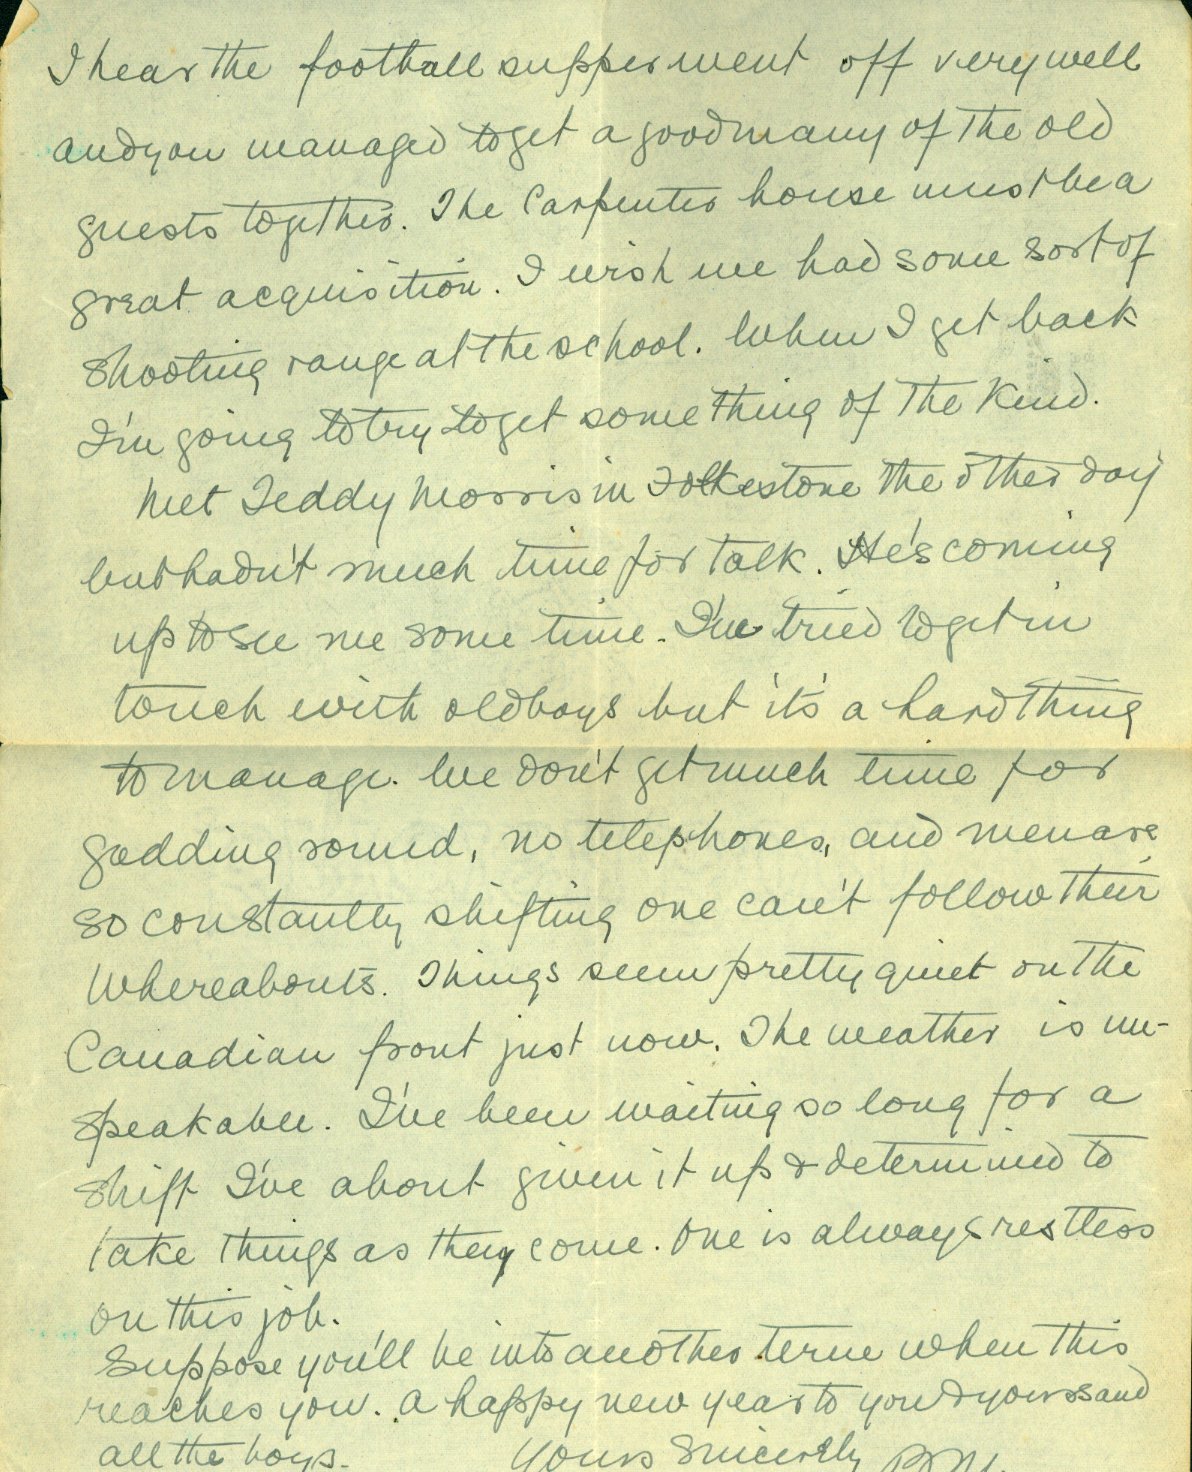 I hear the football supper went off very well
and you managed to get a good many of the old
guests together. The Carpenter house must be a
great acquisition. I wish we had some sort of
shooting range at the school. When I get back
I'm going to try to get something of the kind.
Met Teddy Morris in Folkestone the other day
but hadn't much time for talk. He's coming
up to see me some time. I've tried to get in
touch with old boys but it's a hard thing
to manage. We don't get much time for
gadding round, no telephones, and men are
so constantly shifting one can't follow their
whereabouts. Things seem pretty quiet on the
Canadian front just now. The weather is un-
speakable. I've been waiting so long for a
shift I've about given it up & determined to
take things as they come. One is always restless
on this job.
Suppose you'll be into another term when this
reaches you. A happy new year to you & yours and
all the boys.
Yours Sincerely